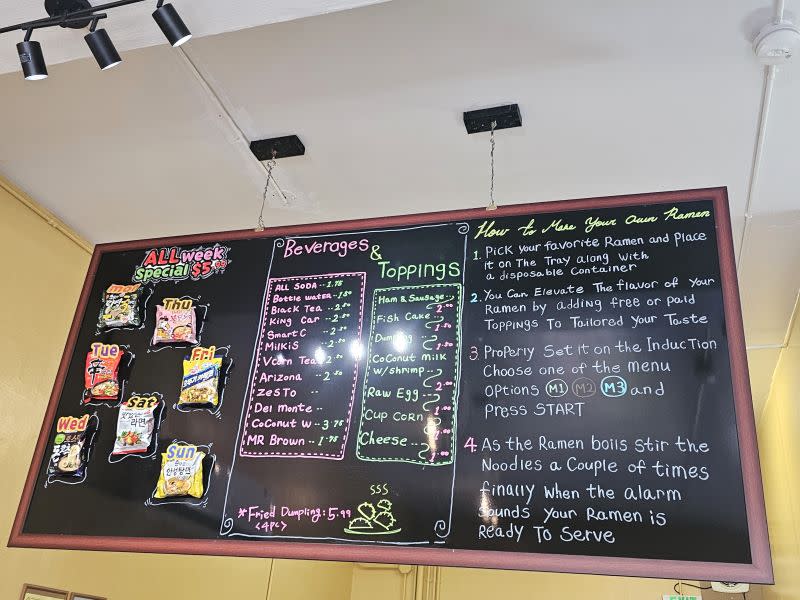 ALL week
special $5.99
Mon
Thu
Tue
Fri
Sat
Wed
Sun
Beverages &
Toppings
ALL SODA -- 1.75
Bottle water - 1.50
Black Tea -- 2.50
King Car -- 2.50
Smart C -- 2.50
Milkis -- 2.50
Arizona -- 2.50
Zesto
Del monte
Coconut W -- 3.75
MR Brown -- 1.95
Ham & Sausage --
2.00
Fish Cake --
Dumpling
Coconut milk
w/shrimp
2.00
Raw Egg --
Cup Corn
Cheese --
1.00
* Fried Dumpling: 5.99
<4pc>
SSS
How to Make Your Own Ramen
1. Pick your favorite Ramen and Place
it on The Tray along with
a disposable Container
2. You Can Elevate The flavor of your
Ramen by adding free or paid
Toppings To Tailored your Taste
3. Properly Set it on the Induction
Choose one of the menu
options M1 M2 M3 and
Press START
4. As the Ramen boils stir the
Noodles a Couple of times
finally when the alarm
sounds Your Ramen is
Ready To Serve